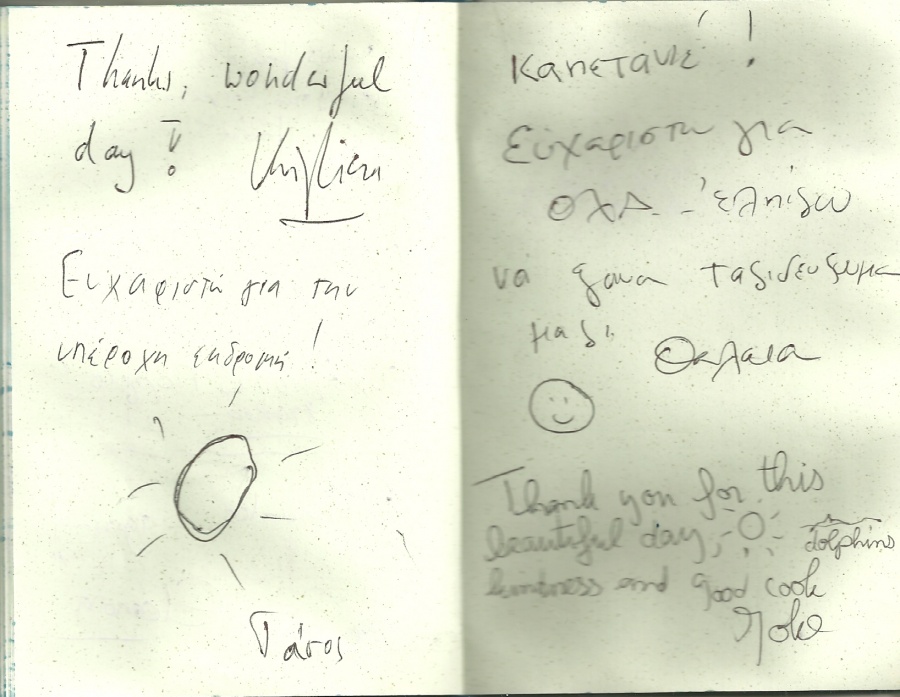 Thanks, wonderful
day!
Ευχαριστώ για την
υπέροχη εκδρομή!
Τάσος
Καπετάνιε!
Ευχαριστώ για
όλα - έλπίζω
να ξανά ταξιδεύξωμε
μαζί.
Θάλασσα
Thank you for this
beautiful day,
dolphins
kindness and good cook